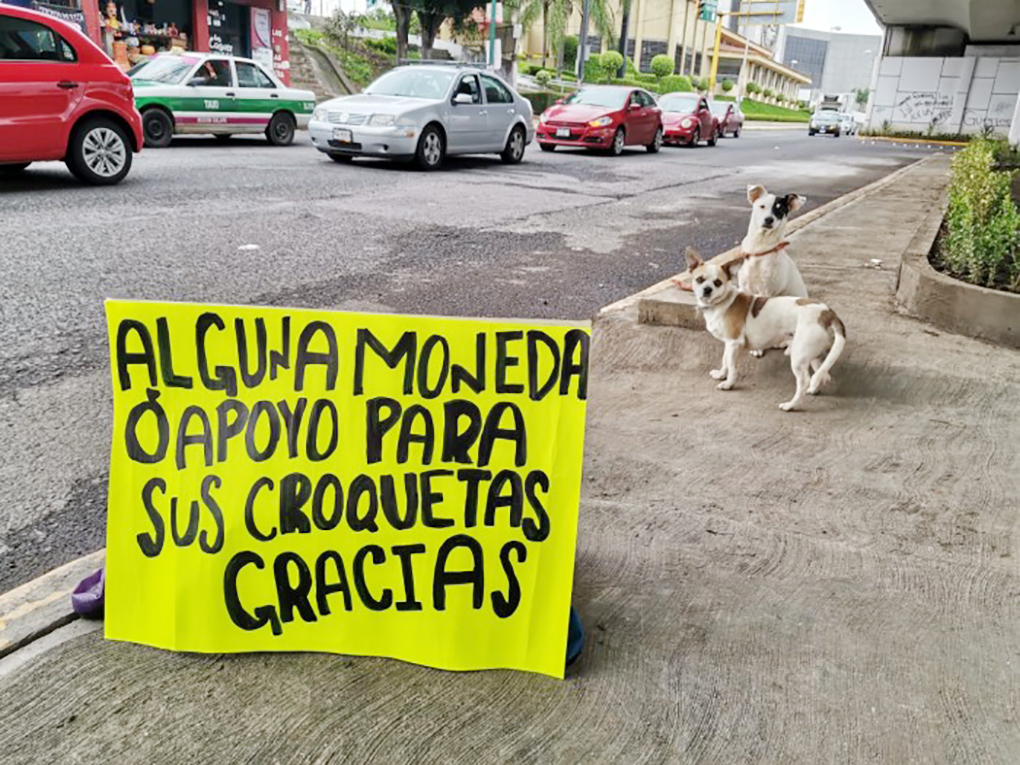 ALGUNA MONEDA
O APOYO PARA
SUS CROQUETAS
GRACIAS
TAXI